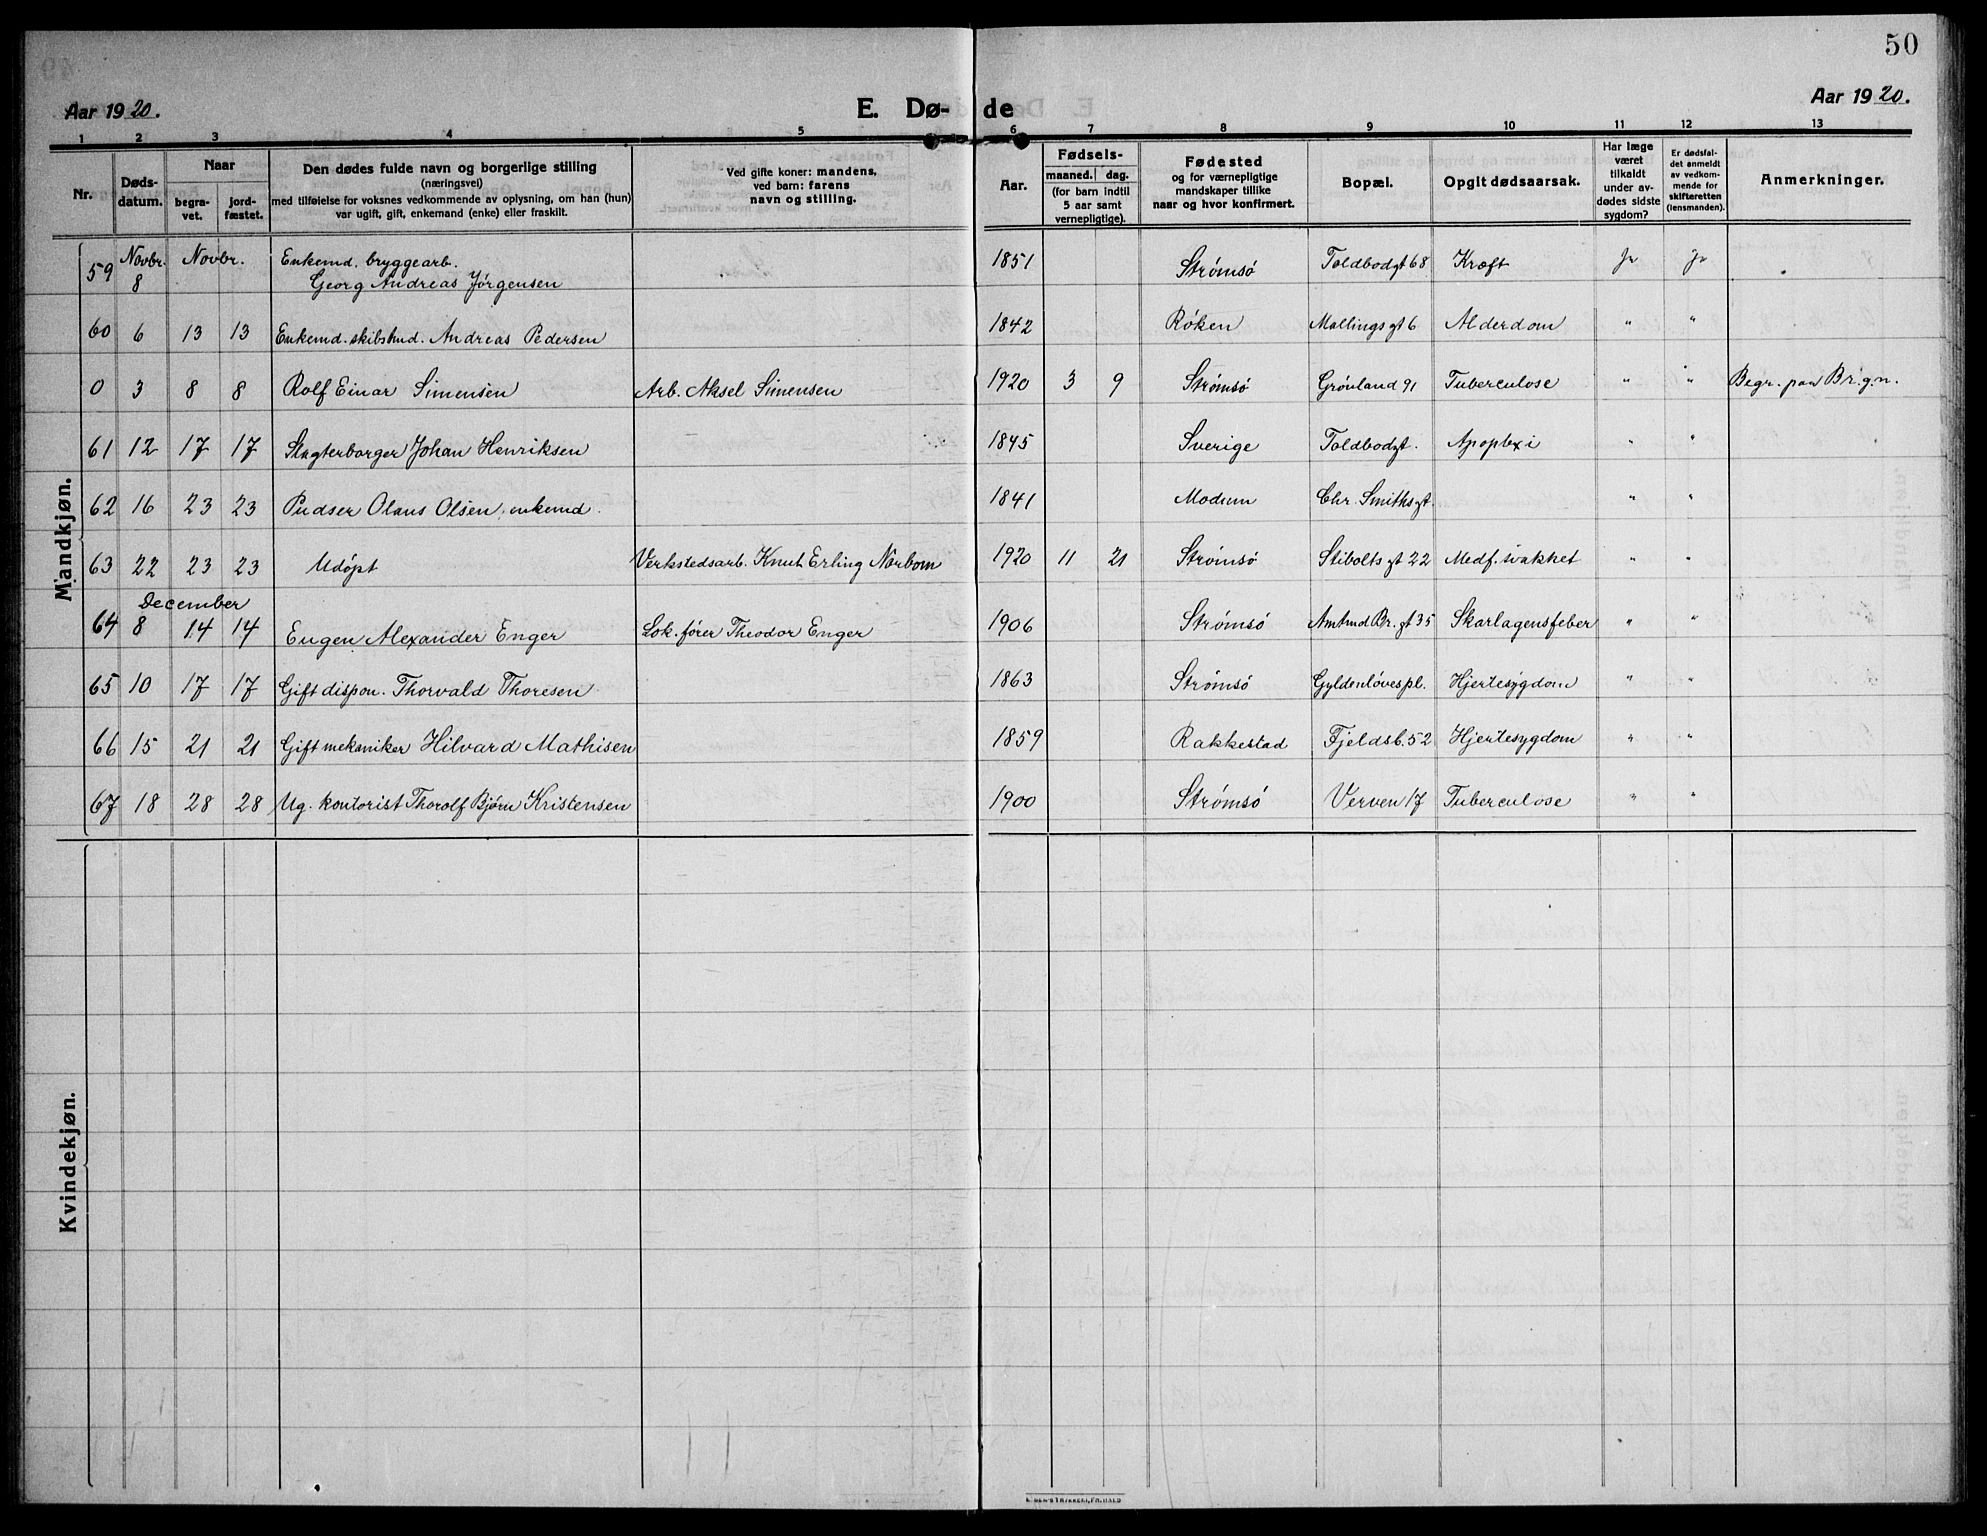 50
Aar 1920.
E. Dø- de
Aar 1920.
1 2 3 4 5 6 7 8 9 10 11 12 13
Nr.
Døds-
datum.
Naar
begra-
vet.
jord-
fæstet.
Den dødes fulde navn og borgerlige stilling
(næringsvei)
med tilføielse for voksnes vedkommende av oplysning, om han (hun)
var ugift, gift, enkemand (enke) eller fraskilt.
Ved gifte koner: mandens,
ved barn: farens
navn og stilling.
Aar.
Fødsels-
maaned. dag.
(for barn indtil
5 aar samt
vernepligtige).
Fødested
og for værnepligtige
mandskaper tillike
naar og hvor konfirmert.
Bopæl.
Opgit dødsaarsak.
Har læge
været
tilkaldt
under av-
dødes sidste
sygdom?
Er dødsfal-
det anmeldt
av vedkom-
mende for
skifteretten
(lensmanden).
Anmerkninger.
Mandkjøn.
Novbr. Novbr. Enkemd. bryggearb.
59 8 Georg Andreas Jørgensen 1851 Strømsö Toldbodgt 68 Kræft Ja Ja
60 6 13 13 Enkemd. skibstmd. Andreas Pedersen 1842 Røken Mallings gt 6 Alderdom " "
0 3 8 8 Rolf Einar Simensen Arb. Aksel Simensen 1920 3 9 Strømsö Grönland 91 Tuberculose " " Begr. paa Br.g.n.
61 12 17 17 Slagterborger Johan Henriksen 1845 Sverige Toldbodgt. Apoplexi " "
62 16 23 23 Pudser Olaus Olsen, enkemd. 1841 Modum Chr. Smiths gt. " "
63 22 23 23 Udöpt Verkstedsarb. Knut Erling Norbom 1920 11 21 Strømsö Stibolts gt 22 Medf. svakhet " "
December
64 8 14 14 Eugen Alexander Enger Lok. fører Theodor Enger 1906 Strømsö Amtmd Br. gt 35 Skarlagensfeber " "
65 10 17 17 Gift dispon. Thorvald Thoresen 1863 Strømsö Gyldenlövespl. Hjertesygdom " "
66 15 21 21 Gift mekaniker Hilvard Mathisen 1859 Rakkestad Fjeldsb. 52 Hjertesygdom " "
67 18 28 28 Ug. kontorist Thorolf Bjørn Kristensen 1900 Strømsö Verven 17 Tuberculose " "
Kvindekjøn.